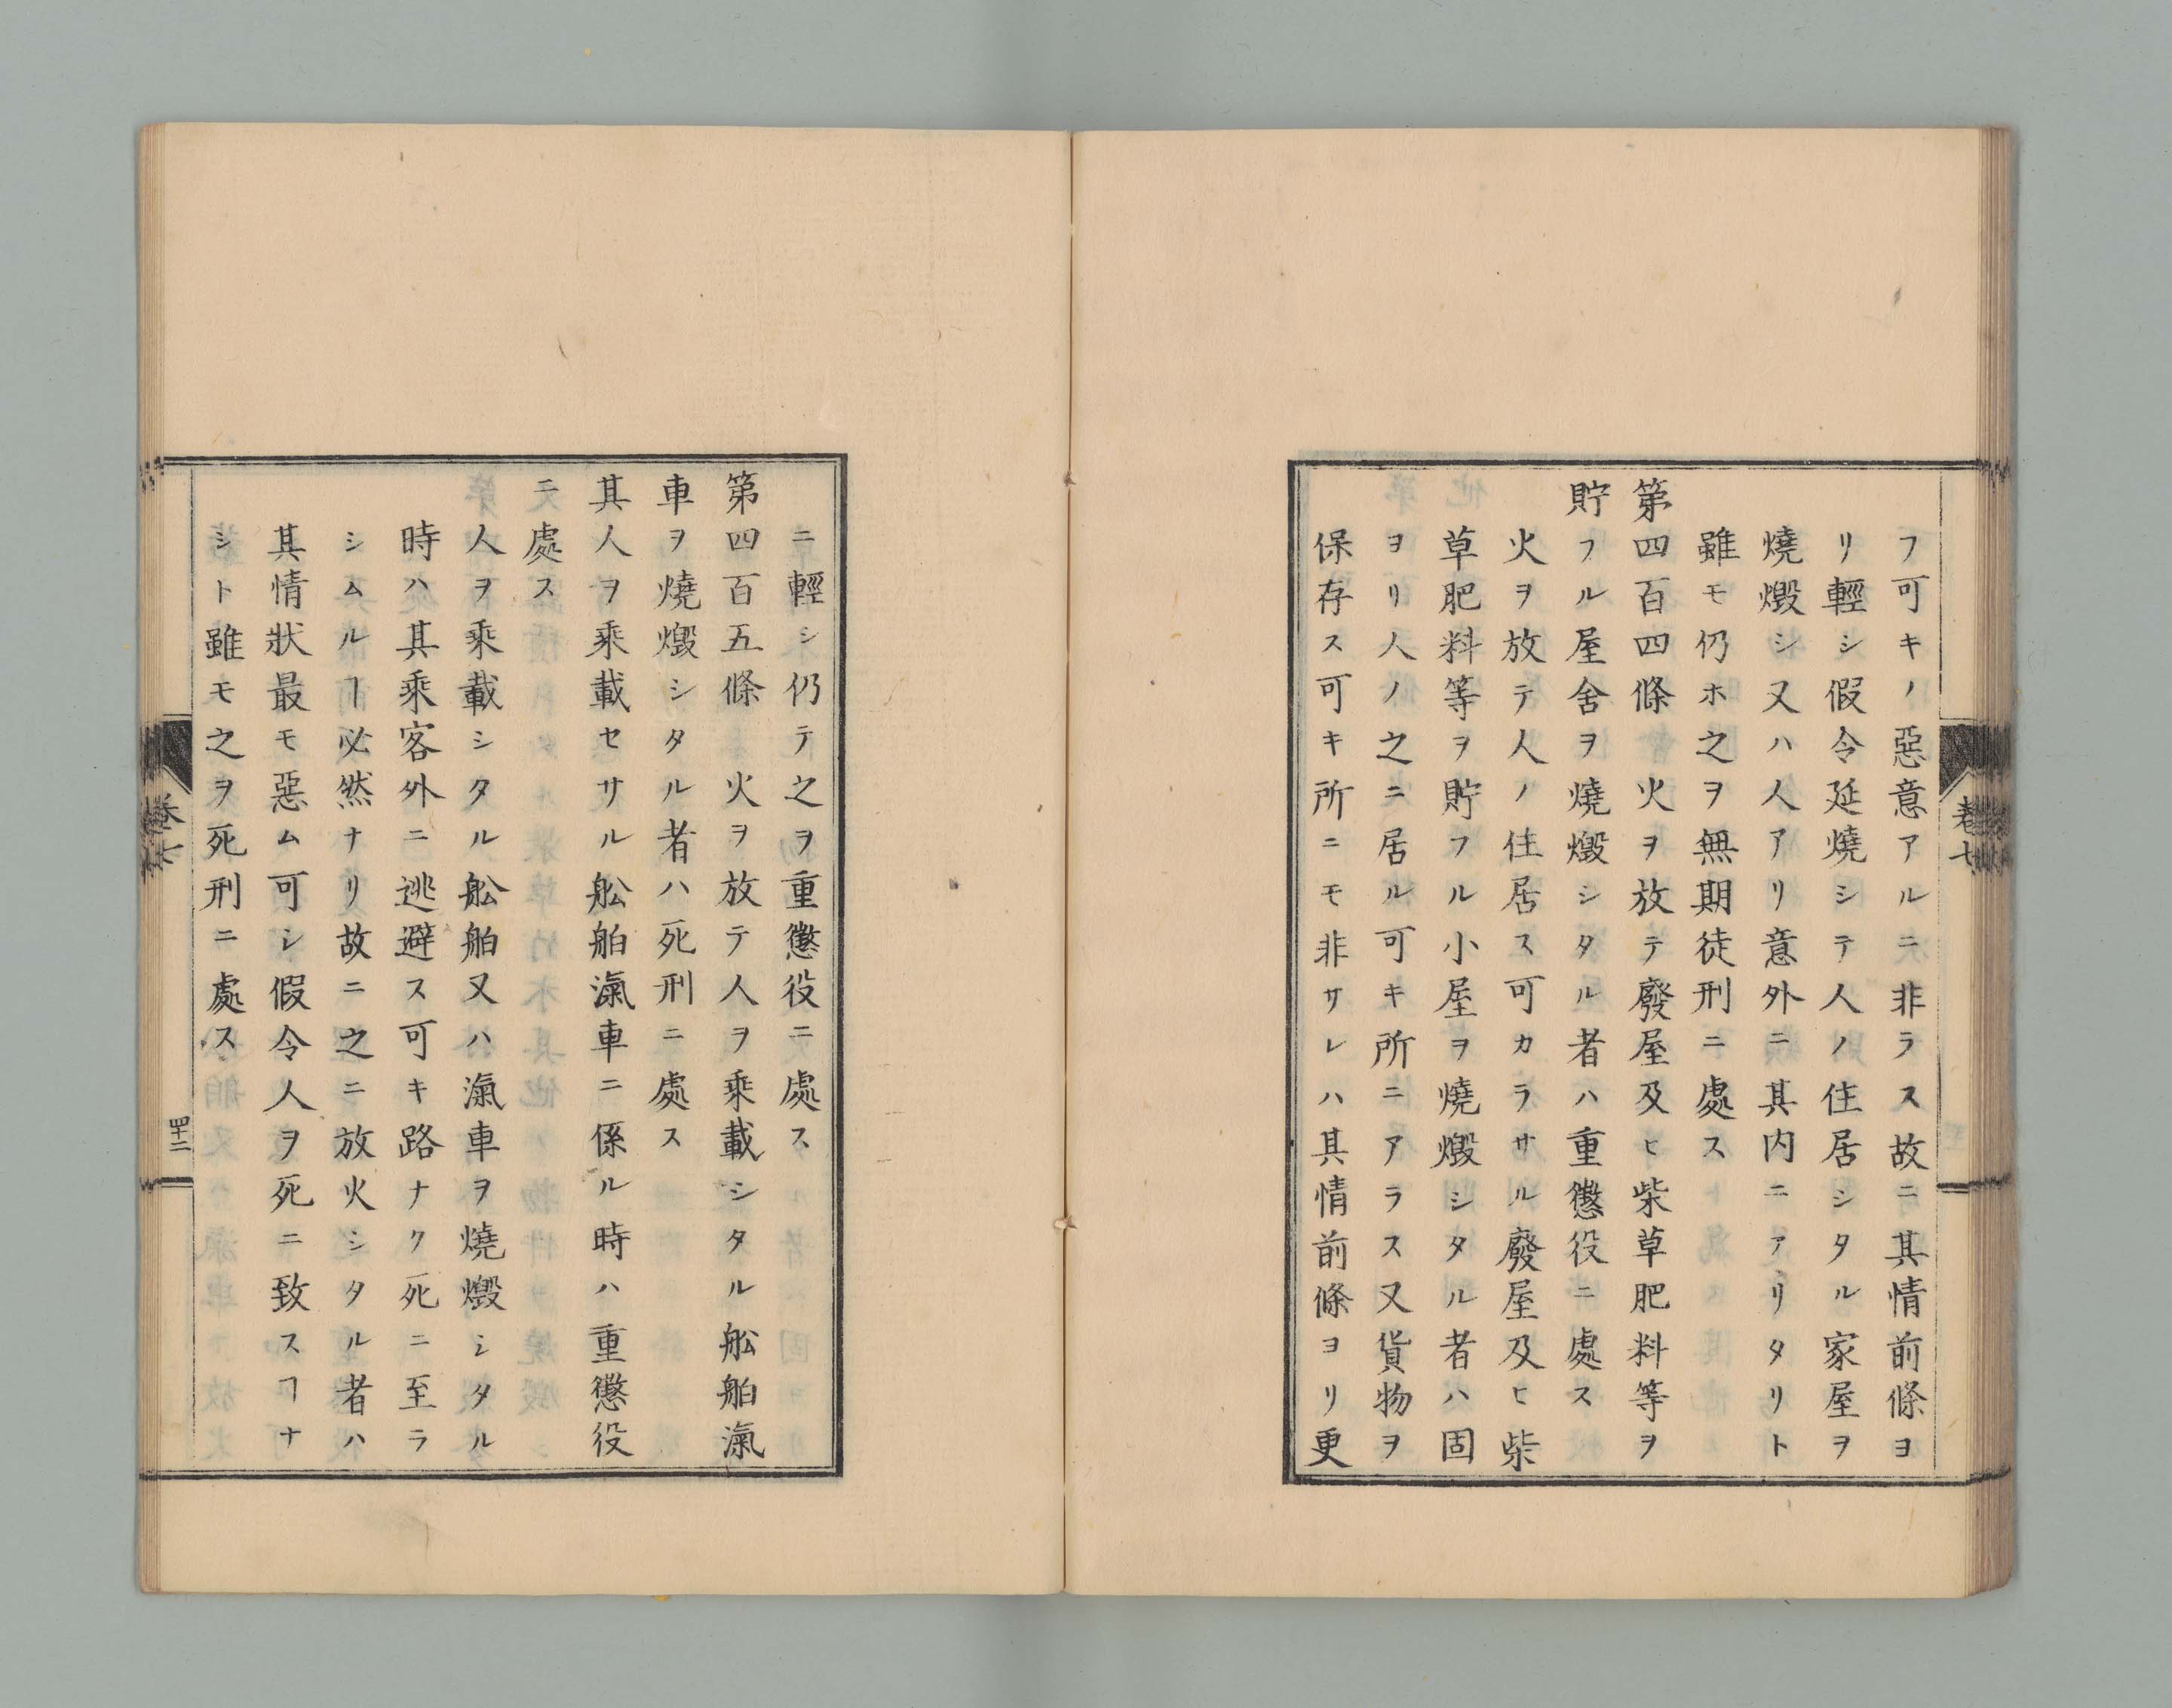 フ可キノ惡意アルニ非ラス故ニ其情前條ヨ
リ輕シ假令延燒シテ人ノ住居シタル家屋ヲ
燒燬シ又ハ人アリ意外ニ其内ニアリタリト
雖モ仍ホ之ヲ無期徒刑ニ處ス
第四百四條 火ヲ放テ廢屋及ヒ柴草肥料等ヲ
貯フル屋舍ヲ燒燬シタル者ハ重懲役ニ處ス
火ヲ放テ人ノ住居ス可カラサル廢屋及ヒ柴
草肥料等ヲ貯フル小屋ヲ燒燬シタル者ハ固
ヨリ人ノ之ニ居ル可キ所ニアラス又貨物ヲ
保存ス可キ所ニモ非サレハ其情前條ヨリ更
卷七
ニ輕シ仍テ之ヲ重懲役ニ處ス
第四百五條 火ヲ放テ人ヲ乘載シタル舩舶滊
車ヲ燒燬シタル者ハ死刑ニ處ス
其人ヲ乘載セサル舩舶滊車ニ係ル時ハ重懲役
ニ處ス
人ヲ乘載シタル舩舶又ハ滊車ヲ燒燬シタル
時ハ其乘客外ニ逃避ス可キ路ナク死ニ至ラ
シムルヿ必然ナリ故ニ之ニ放火シタル者ハ
其情狀最モ惡ム可シ假令人ヲ死ニ致スヿナ
シト雖モ之ヲ死刑ニ處ス
卷七
四十二